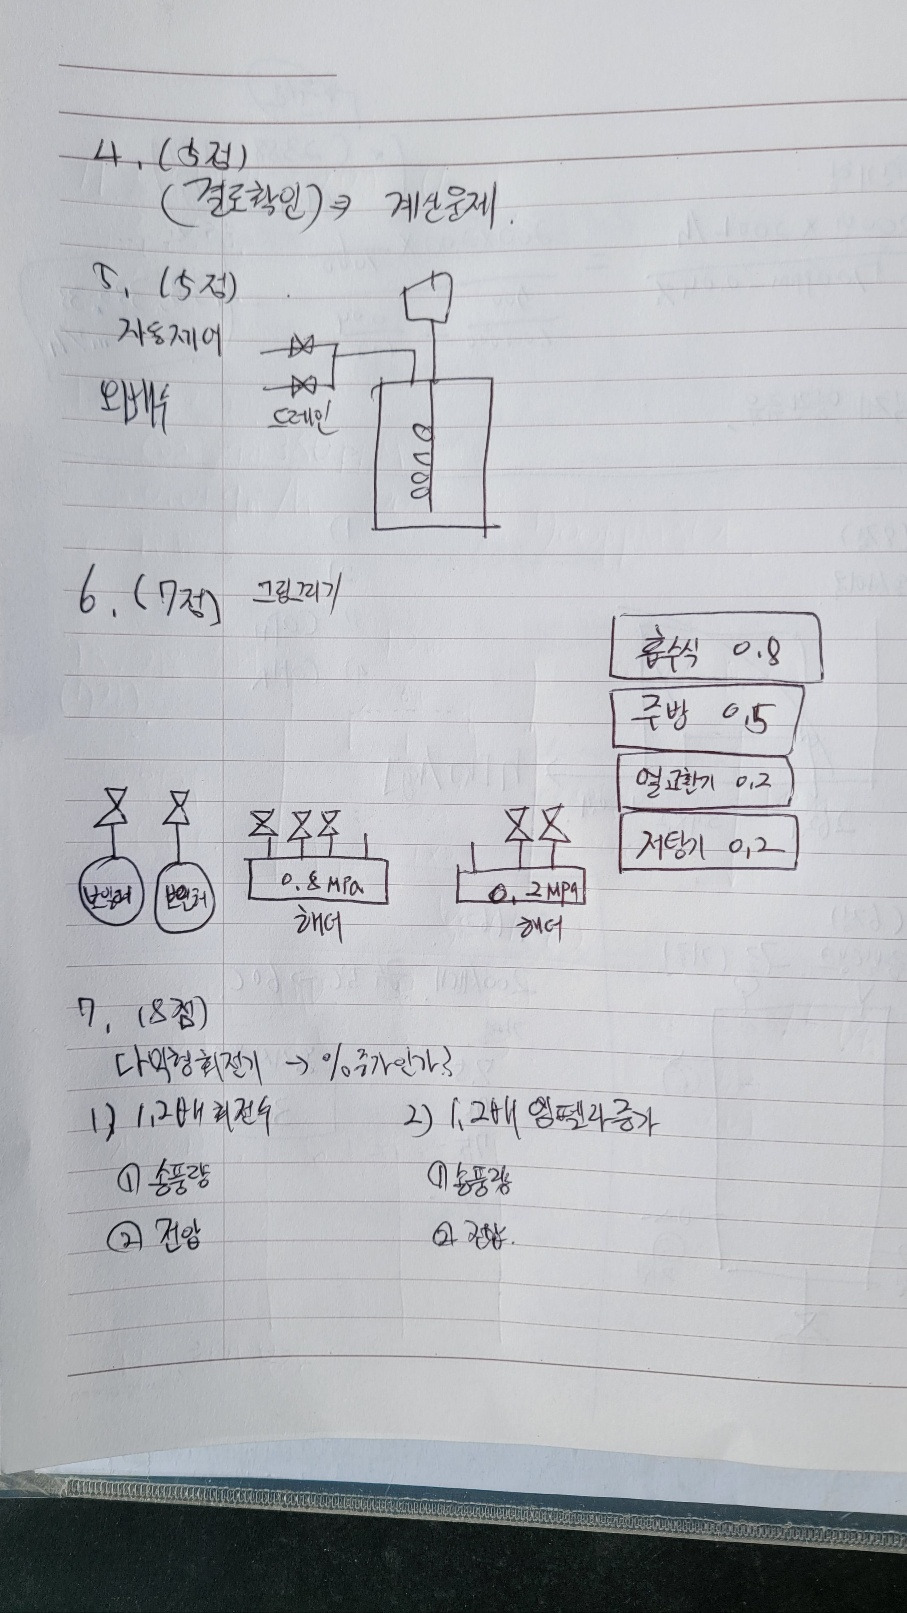 4. (5점)
(결로확인) ⇒ 계산문제.
5. (5점)
자동제어
오배수
드레인
6. (7점) 그림그리기
흡수식 0.8
주방 0.5
열교환기 0.2
저탕기 0.2
보일러 보일러 0.8 MPa 0.2 MPa
헤더 헤더
7. (8점)
다익형회전기 → % 증가인가?
1) 1.2배 회전수 2) 1.2배 임펠라증가
① 송풍량 ① 송풍량
② 전압 ② 전압.